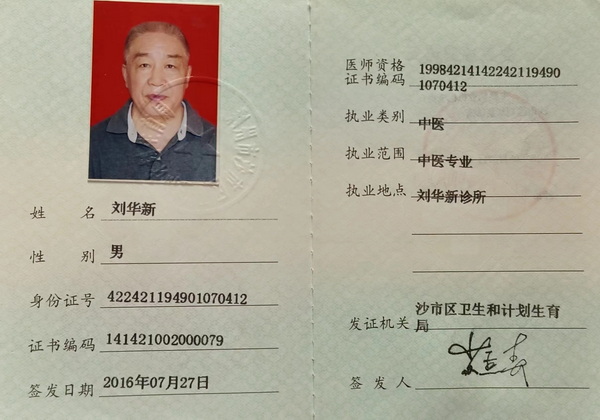 姓 名 刘华新
性 别 男
身份证号 422421194901070412
证书编码 141421002000079
签发日期 2016年07月27日
医师资格
证书编码 19984214142242119490
1070412
执业类别 中医
执业范围 中医专业
执业地点 刘华新诊所
发证机关 沙市区卫生和计划生育
局
签 发 人